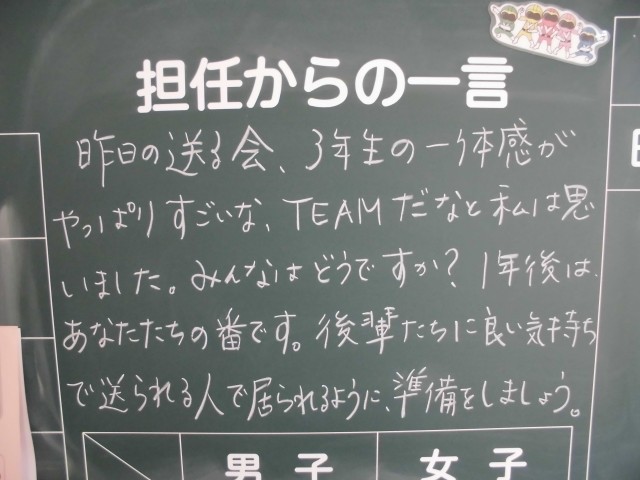 担任からの一言
昨日の送る会、3年生の一体感が
やっぱりすごいな、TEAMだなと私は思
いました。みんなはどうですか?1年後は、
あなたたちの番です。後輩たちに良い気持ち
で送られる人で居られるように、準備をしましょう。
男子 女子